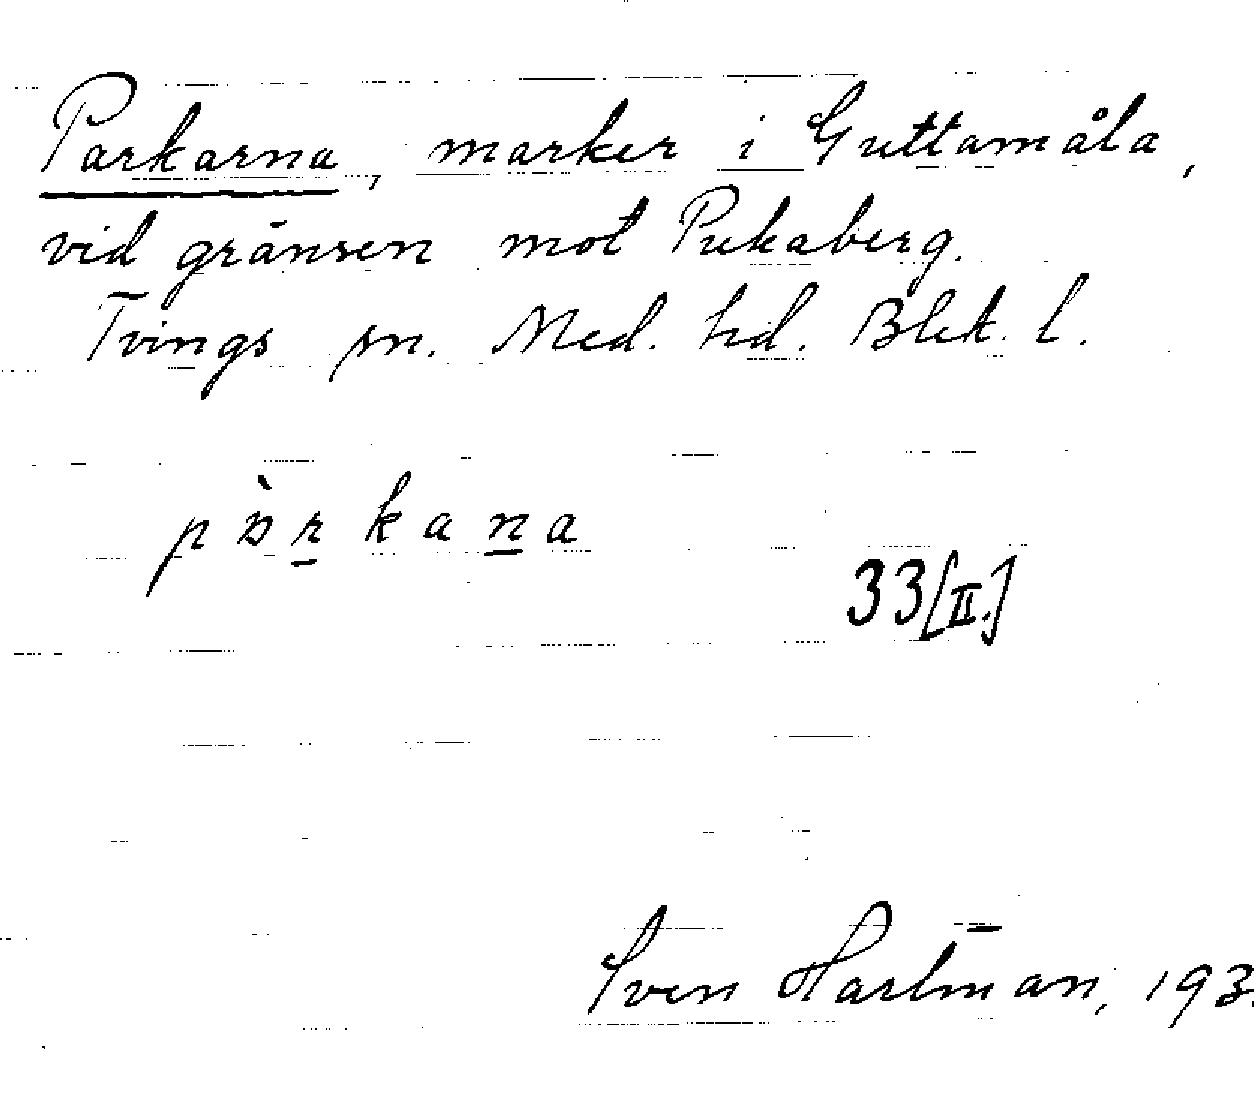 Parkarna, marker i Guttamåla,
vid gränsen mot Pukaberg.
Tvings sn. Med. hd. Blek. l.
pɒ̀r̠kan̠a
33[II.]
Sven Hartman, 193